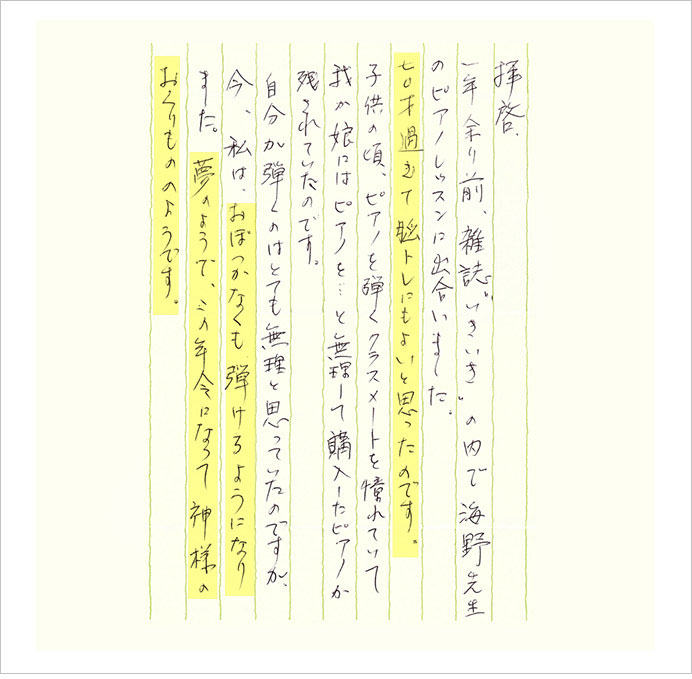 拝啓、
一年余り前、雑誌“いきいき”の内で海野先生
のピアノレッスンに出合いました。
七〇才過ぎて脳トレにもよいと思ったのです。
子供の頃、ピアノを弾くクラスメートを憧れていて
我が娘にはピアノを…と無理して購入したピアノが
残されていたのです。
自分が弾くのはとても無理と思っていたのですが、
今、私は、おぼつかなくも弾けるようになり
ました。夢のようで、この年令になって神様の
おくりもののようです。